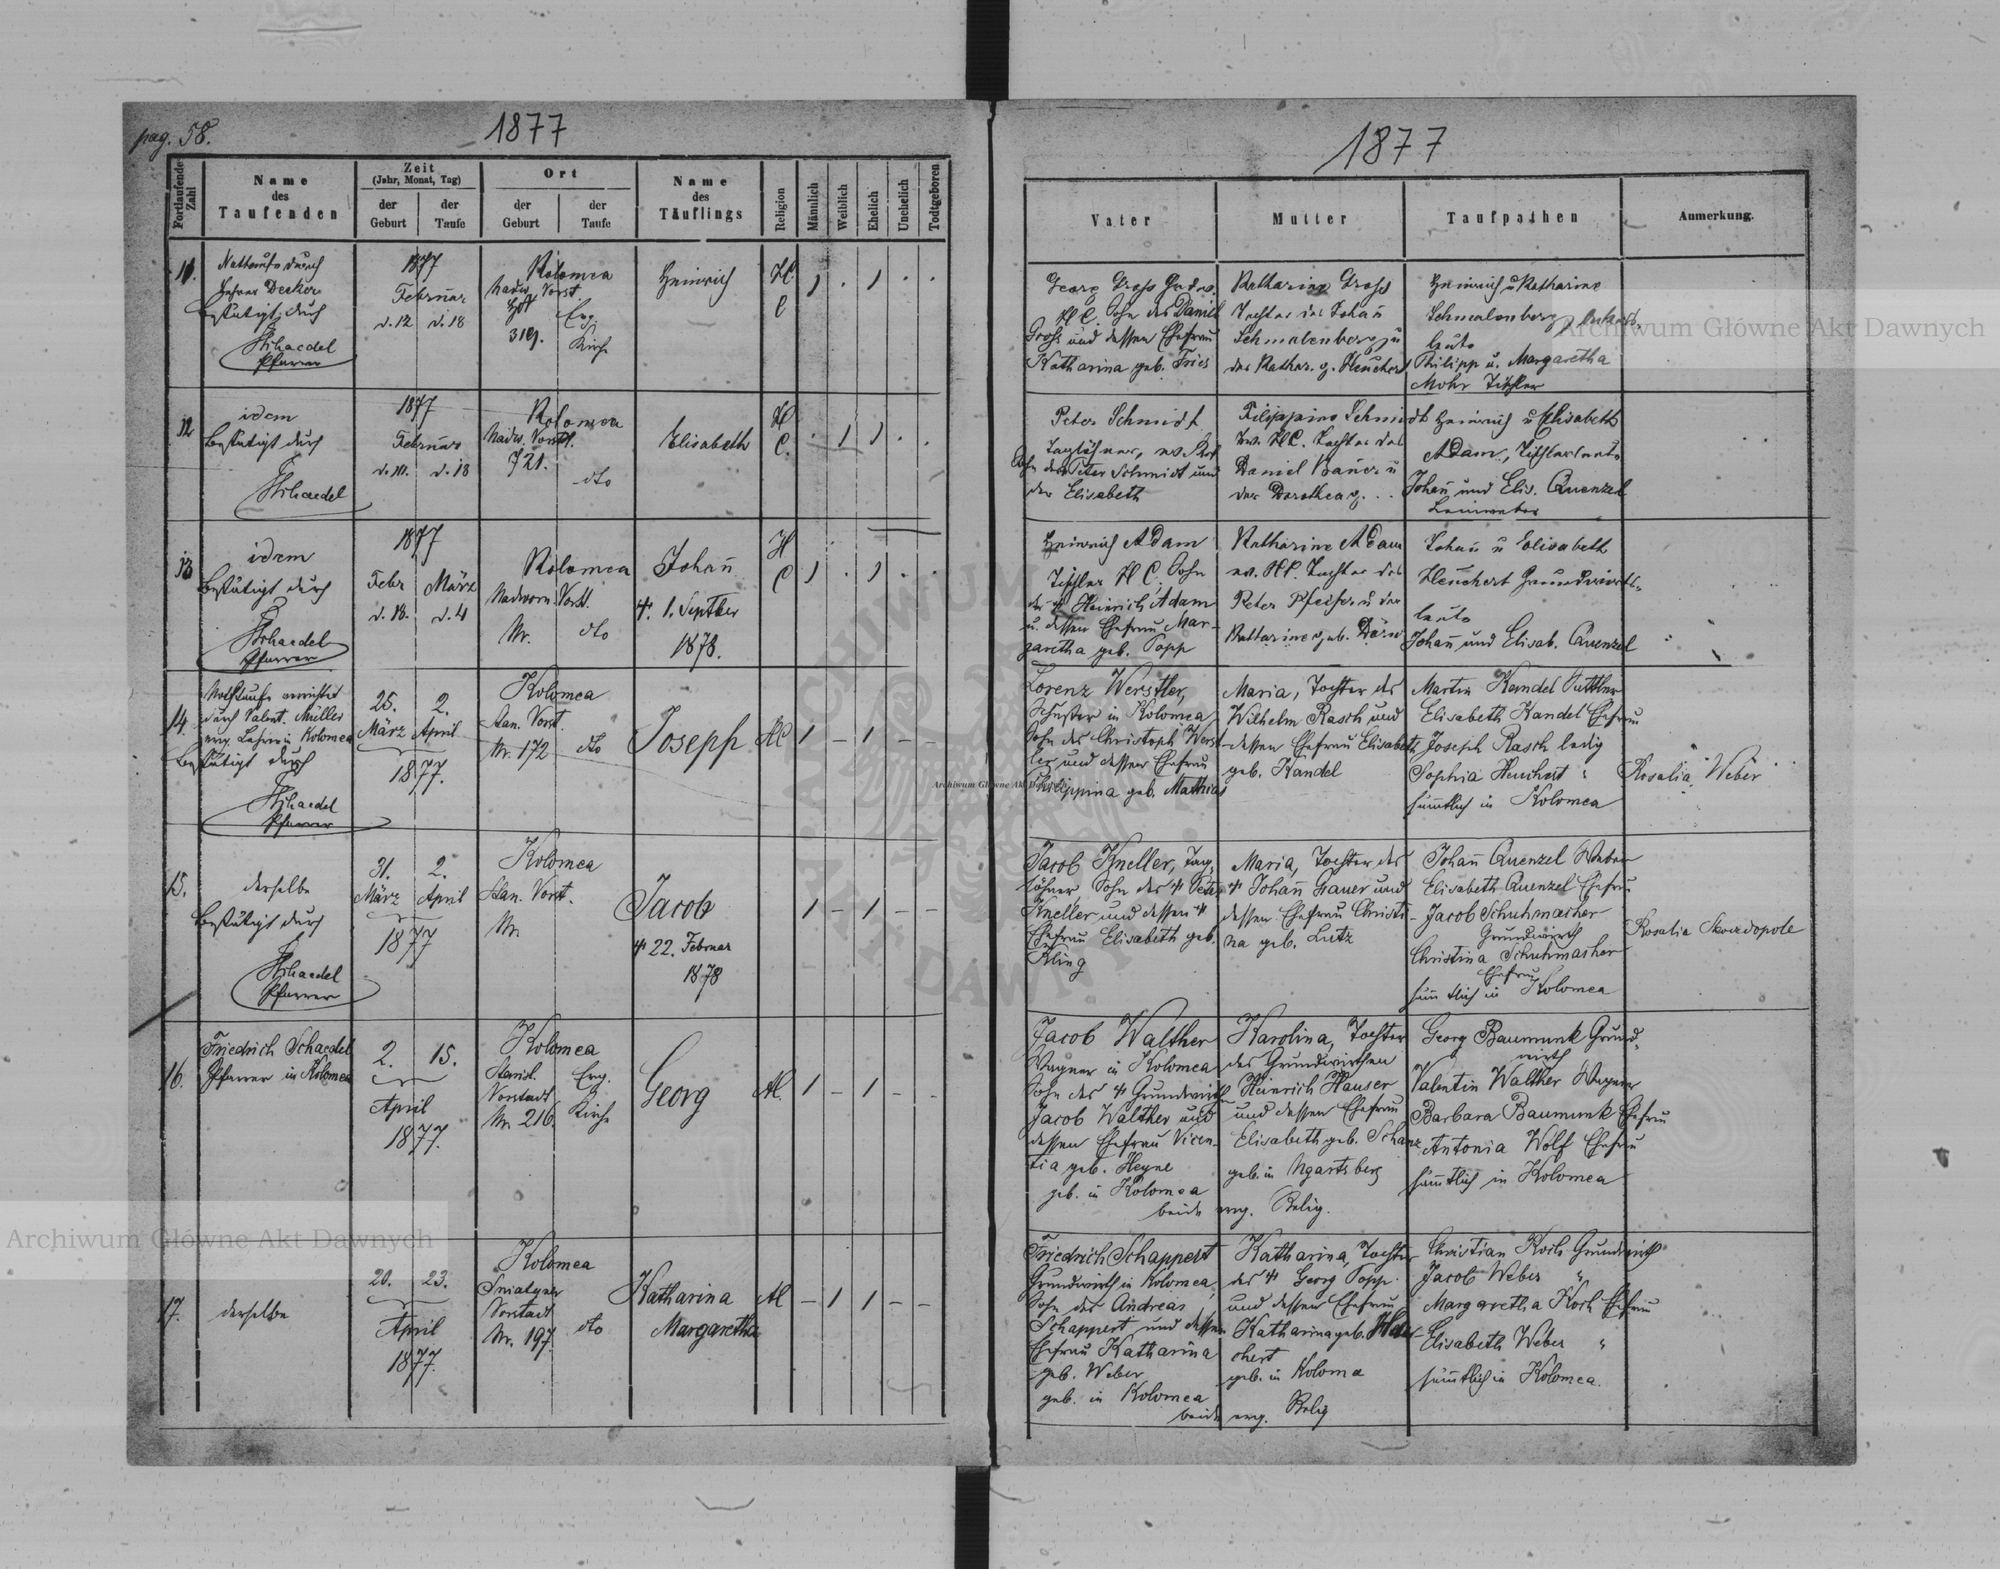 pag. 58.
1877
Fortlaufende Zahl
Name des Taufenden
Zeit (Jahr, Monat, Tag)
der Geburt
der Taufe
Ort
der Geburt
der Taufe
Name des Täuflings
Religion
Männlich
Weiblich
Ehelich
Unehelich
Todtgeboren
11.
Nothtaufe durch
Lehrer Decker
Bestätigt durch
FSchaedel
Pfarrer
1877
Februar
d. 12 d. 18
Kolomea
Nadw. Vorst
319.
Evg.
Kirche
Heinrich
HC
12
idem
Bestätigt durch
FSchaedel
1877
Februar
d. 10. d. 18
Kolomea
Nadw. Vorst.
721.
dto
Elisabeth
HC.
13
idem
Bestätigt durch
FSchaedel
Pfarrer
1877
Febr März
d. 18. d. 4
Kolomea
Nadworn. Vorst.
Nr. dto
Johañ
1. Septber
1878.
HC
14.
Nothtaufe verrichtet
durch Valent. Müller
evg. Lehrer in Kolomea
Bestätigt durch
FSchaedel
Pfarrer
25. 2.
März April
1877.
Kolomea
Stan. Vorst.
Nr. 172 dto
Joseph
HC
15.
derselbe
Bestätigt durch
FSchaedel
Pfarrer
31. 2.
März April
1877
Kolomea
Stan. Vorst.
Nr.
Jacob
22. Februar
1878
16.
Friedrich Schaedel
Pfarrer in Kolomea
2. 15.
April
1877.
Kolomea
Stanisl. Evg.
Vorstadt Kirche
Nr. 216
Georg
17.
derselbe
20. 23.
April
1877.
Kolomea
Sniatyner
Vorstadt
Nr. 197. dto
Katharina
Margaretha
1877
Vater
Mutter
Taufpathen
Anmerkung.
Georg Gross
HC. Sohn des Daniel
Gross und dessen Ehefrau
Katharina geb. Fries
Katharina Gross
Tochter des Johañ
Schmalenberg u
der Kathar. g. Heuchert
Heinrich u Katharine
Schmalenberg
leute
Philipp u. Margaretha
Mohr Tischler
Peter Schmidt
Taglöhner,
Sohn des Peter Schmidt und
der Elisabeth
Filippine Schmidt
HC. Tochter des
Daniel Bauer u
der Dorothea g. . .
Heinrich u Elisabeth
Adam, Tischlerleute
Johañ und Elis. Quenzel
Leinweber
Heinrich Adam
Tischler HC. Sohn
des Heinrich Adam
u. dessen Ehefrau Mar-
garetha geb. Popp
Katharine Adam
ev. HC. Tochter des
Peter Pfeifer u der
Katharine geb. Dörr
Johañ u Elisabeth
Heuchert Grundwirths-
leute
Johañ und Elisab. Quenzel
Lorenz Werstler,
Schuster in Kolomea
Sohn des Christoph Werst-
ler und dessen Ehefrau
Philippina geb. Mathias
Maria, Tochter des
Wilhelm Rasch und
dessen Ehefrau Elisabeth
geb. Kandel
Martin Kandel Sattler
Elisabeth Kandel Ehefrau
Joseph Rasch ledig
Sophia Heuchert "
sämtlich in Kolomea
Rosalia Weber
Jacob Kneller, Tag-
löhner, Sohn des Peter
Kneller und dessen
Ehefrau Elisabeth geb.
Kling
Maria, Tochter des
Johañ Gauer und
dessen Ehefrau Christi-
na geb. Lutz
Johañ Quenzel Weber
Elisabeth Quenzel Ehefrau
Jacob Schuhmacher
Grundwirth
Christina Schuhmacher
Ehefrau
sämtlich in Kolomea
Rosalie Skwedopole
Jacob Walther
Wagner in Kolomea
Sohn des Grundwirths
Jacob Walther und
dessen Ehefrau Vicen-
tia geb. Heyne
geb. in Kolomea
Karolina, Tochter
des Grundwirthen
Heinrich Hauser
und dessen Ehefrau
Elisabeth geb. Schanz
geb. in Ugartsberg
beide evg. Relig.
Georg Baumunk Grund-
wirth
Valentin Walther Wagner
Barbara Baumunk Ehefrau
Antonia Wolf Ehefrau
sämtlich in Kolomea
Friedrich Schappert
Grundwirth in Kolomea,
Sohn des Andreas
Schappert und dessen
Ehefrau Katharina
geb. Weber
geb. in Kolomea
Katharina, Tochter
des Georg Popp
und dessen Ehefrau
Katharina geb. Heu-
chert
geb. in Koloma
beide evg. Relig
Christian Koch Grundwirth
Jacob Weber "
Margaretha Koch Ehefrau
Elisabeth Weber "
sämtlich in Kolomea.
Archiwum Główne Akt Dawnych
Archiwum Główne Akt Dawnych
Archiwum Główne Akt Dawnych
ARCHIWUM
AKT DAWNYCH